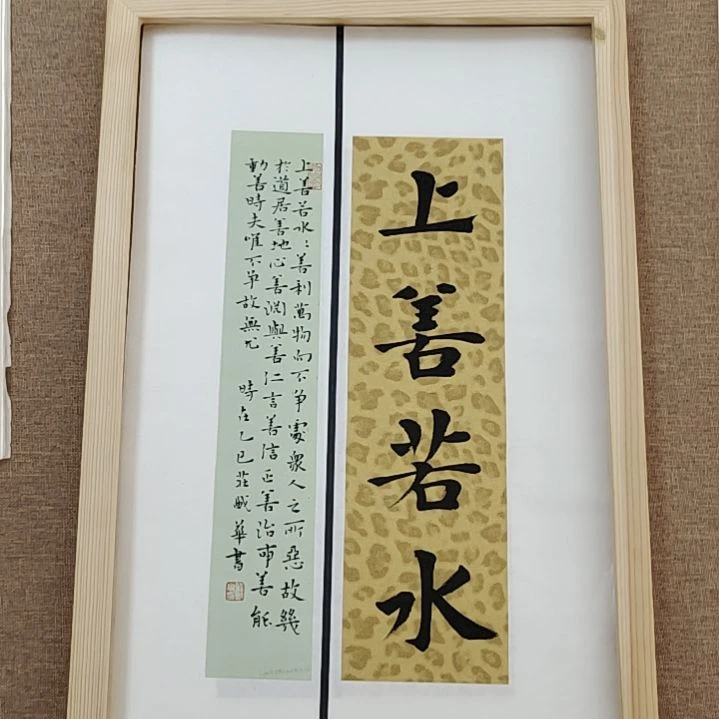 上善若水
上善若水〻善利萬物而不争處衆人之所惡故幾
於道居善地心善淵與善仁言善信正善治事善能
動善時夫唯不争故無尤 時在乙巳莊華書